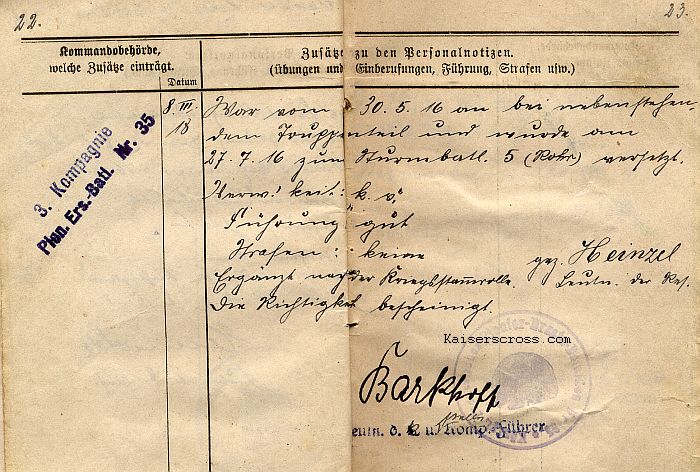 22.
23.
Kommandobehörde,
welche Zusätze einträgt.
Datum
Zusätze zu den Personalnotizen.
(Übungen und Einberufungen, Führung, Strafen usw.)
3. Kompagnie
Pion. Ers.-Batl. Nr. 35
8. III.
18
War vom 30.5.16 an bei nebenstehen-
dem Truppenteil und wurde am
27.7.16 zum Sturmbatl. 5 (Rohr) versetzt.
Verw. keit: k. v.
Führung: gut
Strafen: keine
gez. Heinzel
Leutn. der Res.
Ergänzt nach der Kriegsstammrolle.
Die Richtigkeit bescheinigt.
Kaiserscross.com
Barkhoff
Leutn. d. R. u. Komp.-Führer